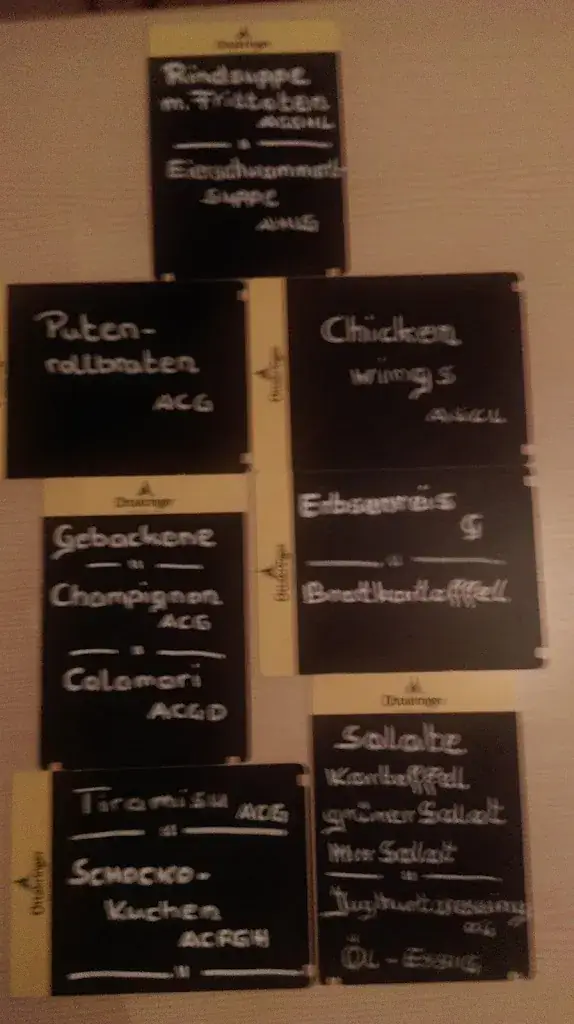 Ottakringer
Rindsuppe
m. Frittaten
Eierschwammerl-
suppe
Puten-
rollbraten
ACG
Ottakringer
Chicken
wings
Ottakringer
Gebackene
Champignon
ACG
Calamari
ACGD
Ottakringer
Erbsenreis
G
Bratkartoffel
Ottakringer
Tiramisu ACG
SCHOCKO-
Kuchen
ACFGH
Ottakringer
Salate
Kartoffel
grüner Salat
ÖL - ESSIG